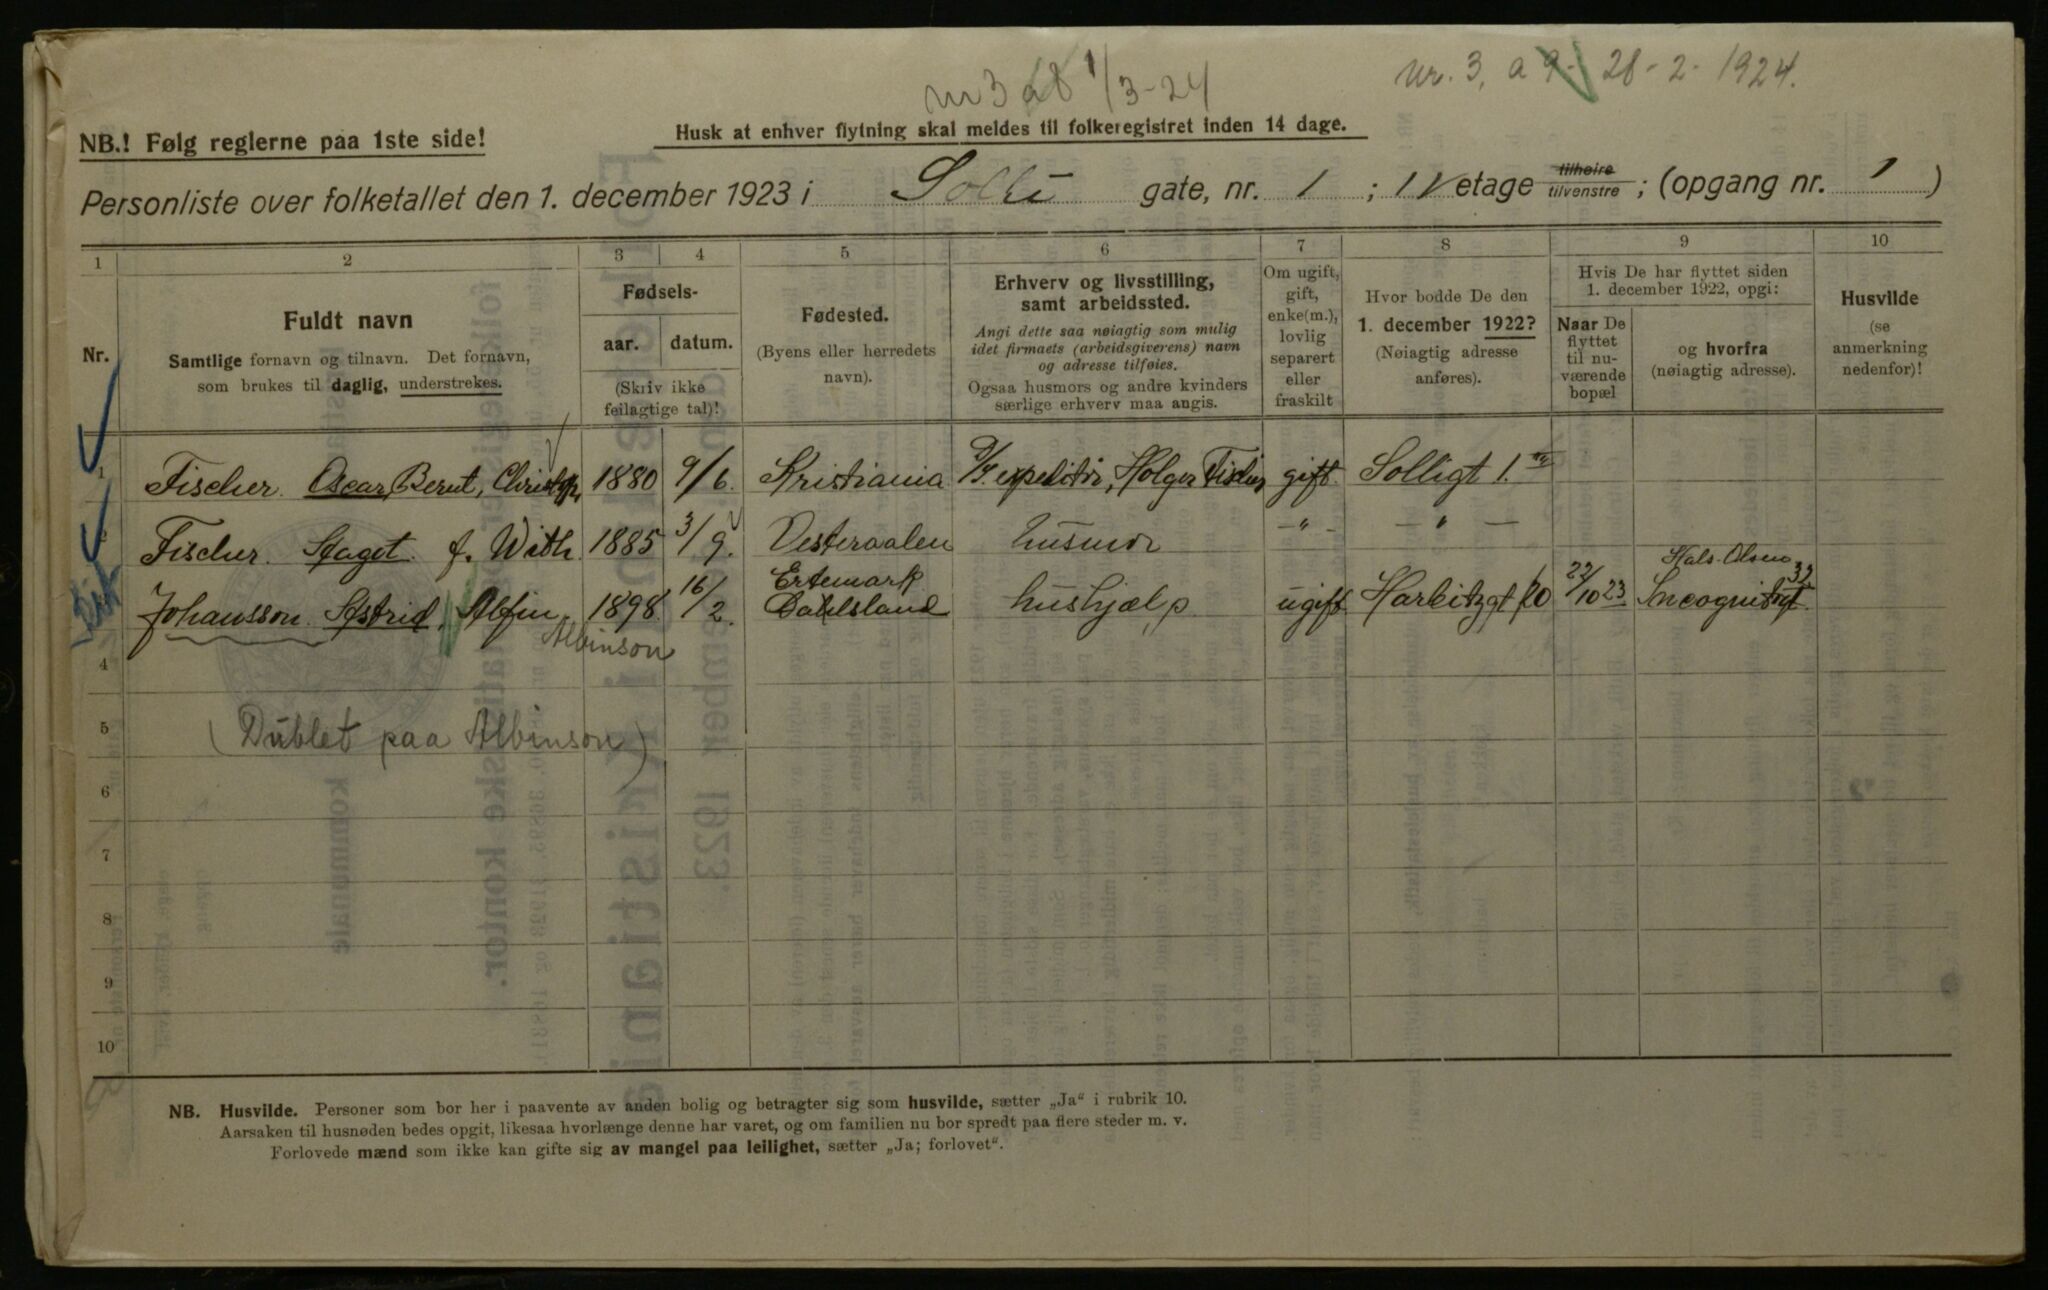 nr 3 a 8 1/3-24
nr. 3, a 9 - 28-2-1924.
NB.! Følg reglerne paa 1ste side!
Husk at enhver flytning skal meldes til folkeregistret inden 14 dage.
Personliste over folketallet den 1. december 1923 i Solli gate, nr. 1 ; IV etage tilhøire tilvenstre ; (opgang nr. 1 )
1 2 3 4 5 6 7 8 9 10
Nr.
Fuldt navn
Samtlige fornavn og tilnavn. Det fornavn,
som brukes til daglig, understrekes.
Fødsels-
aar. datum.
(Skriv ikke
feilagtige tal)!
Fødested.
(Byens eller herredets
navn).
Erhverv og livsstilling,
samt arbeidssted.
Angi dette saa nøiagtig som mulig
idet firmaets (arbeidsgiverens) navn
og adresse tilføies.
Ogsaa husmors og andre kvinders
særlige erhverv maa angis.
Om ugift,
gift,
enke(m.),
lovlig
separert
eller
fraskilt
Hvor bodde De den
1. december 1922?
(Nøiagtig adresse
anføres).
Hvis De har flyttet siden
1. december 1922, opgi:
Naar De
flyttet
til nu-
værende
bopæl
og hvorfra
(nøiagtig adresse).
Husvilde
(se
anmerkning
nedenfor)!
1 Fischer Oscar, Bernt, 1880 9/6. Kristiania expeditør, Holger gift. Solligt 1.
2 Fischer. Saget. f. With 1885 3/9. Vesteraalen husmor -"- -"-
Ertemark Hals. Olsen
Johansson Astrid, Alfin 1898. 16/2. Dahlsland hushjælp ugift Harbitzgt 20 22/10 23 Incognitogt. 32
Albinson
4
5 (Dublet paa Albinson)
6
7
8
9
10
NB. Husvilde. Personer som bor her i paavente av anden bolig og betragter sig som husvilde, sætter „Ja" i rubrik 10.
Aarsaken til husnøden bedes opgit, likesaa hvorlænge denne har varet, og om familien nu bor spredt paa flere steder m. v.
Forlovede mænd som ikke kan gifte sig av mangel paa leilighet, sætter „Ja; forlovet".